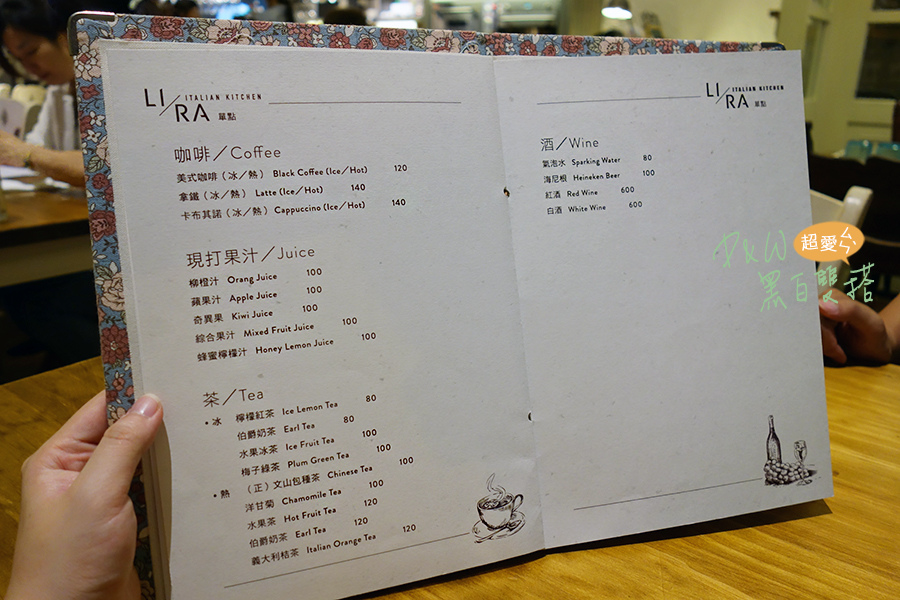 LI/RA ITALIAN KITCHEN
單點
咖啡／Coffee
美式咖啡（冰／熱） Black Coffee (Ice／Hot) 120
拿鐵（冰／熱） Latte (Ice／Hot) 140
卡布其諾（冰／熱） Cappuccino (Ice／Hot) 140
現打果汁／Juice
柳橙汁 Orang Juice 100
蘋果汁 Apple Juice 100
奇異果 Kiwi Juice 100
綜合果汁 Mixed Fruit Juice 100
蜂蜜檸檬汁 Honey Lemon Juice 100
茶／Tea
•冰 檸檬紅茶 Ice Lemon Tea 80
伯爵奶茶 Earl Tea 80
水果冰茶 Ice Fruit Tea 100
梅子綠茶 Plum Green Tea 100
•熱 （正）文山包種茶 Chinese Tea 100
洋甘菊 Chamomile Tea 100
水果茶 Hot Fruit Tea 120
伯爵奶茶 Earl Tea 120
義大利桔茶 Italian Orange Tea 120
LI/RA ITALIAN KITCHEN
單點
酒／Wine
氣泡水 Sparking Water 80
海尼根 Heineken Beer 100
紅酒 Red Wine 600
白酒 White Wine 600
P&W 超愛ㄙㄟ
黑白雙搭